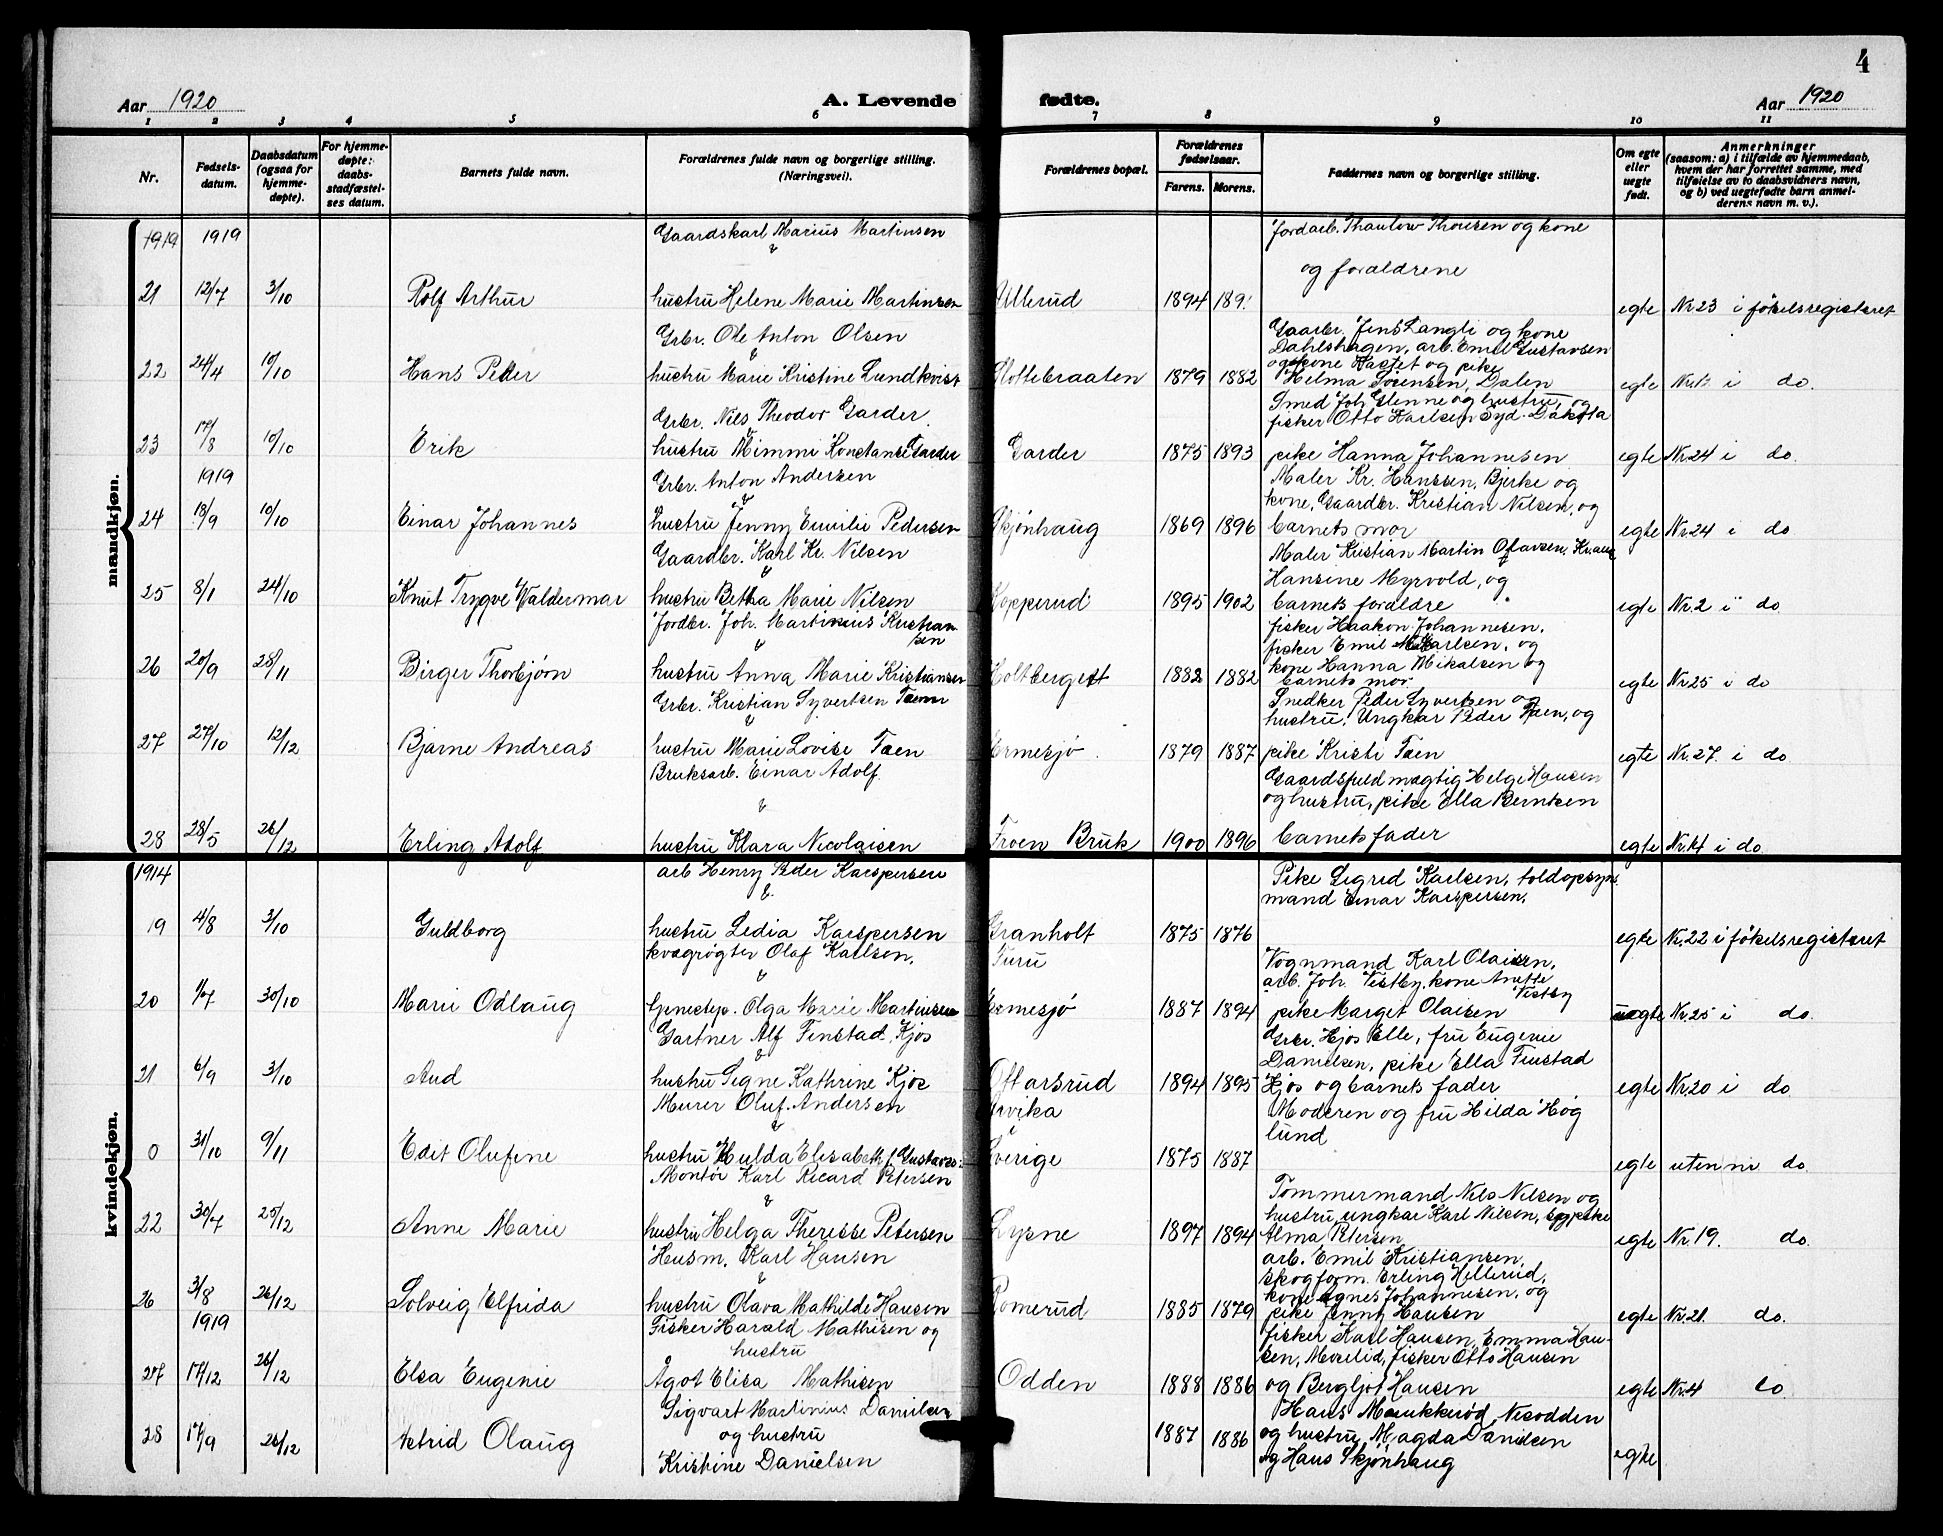 4
Aar 1920
A. Levende
fødte.
Aar 1920
1 2 3 4 5 6 7 8 9 10 11
Nr.
Fødsels-
datum.
Daabsdatum
(ogsaa for
hjemme-
døpte).
For hjemme-
døpte:
daabs-
stadfæstel-
ses datum.
Barnets fulde navn.
Forældrenes fulde navn og borgerlige stilling.
(Næringsvei).
Forældrenes bopæl.
Forældrenes
fødselsaar.
Farens. Morens.
Faddernes navn og borgerlige stilling.
Om egte
eller
uegte
født.
Anmerkninger
(saasom: a) i tilfælde av hjemmedaab,
hvem der har forrettet samme, med
tilføielse av to daabsvidners navn,
og b) ved uegtefødte barn anmel-
derens navn m. v.).
mandkjøn.
1919 1919 Gaardskarl Marius Martinsen Jordarb. Thaulow Thoresen og kone
& og forældrene
21 12/7 3/10 Rolf Arthur hustru Helene Marie Martinsen Ullerud 1894 189 egte Nr. 23 i føkelsregisteret
Grbr. Ole Anton Olsen Gaarbr. Jens Langli og kone
& Dahlshagen, arb. Emil Gustavsen
og kone Kastet og pike
22 24/4 10/10 Hans Peder hustru Marie Kristine Lundkvist Slottebraaten 1879 1882 Helma Sørensen, Dalen egte Nr. i do.
Grbr. Nils Theodor Garder. Smed Joh Glenne og hustru, og
& fisker Otto Karlsen Syd-Dakota
23 17/8 10/10 Erik hustru Mimmi Konstanse Garder Garder 1875 1893 pike Hanna Johannesen egte Nr. 24 i do.
1919 Grbr. Anton Andersen Maler Kr. Hanssen, Bjerke og
& kone, Gaardbr. Kristian Nilsen, og
24 13/9 10/10 Einar Johannes hustru Jenny Emilie Pedersen Skjønhaug 1869 1896 barnets mor egte Nr. 24 i do
Gaardbr. Karl Kr. Nilsen Maler Kristian Martin Olavsen,
& Hansine Myrvold, og
25 8/1 24/10 Knut Trygve Valdermar hustru Betha Marie Nilsen Kopperud 1895 1902 barnets foraldre egte Nr. 2 i do
Jordbr. Joh. Martinius Kristian- fisker Haakon Johannesen,
sen fisker Emil Karlsen, og
& kone Hanna Mikalsen og
26 20/9 28/11 Birger Thorbjørn hustru Anna Marie Kristiansen Holtberget 1882 1882 barnets mor egte Nr. 25 i do
Grbr. Kristian Syvertsen Taen Snedker Peder Syvertsen og
& hustru, Ungkar Peder Taen, og
27 27/10 12/12 Bjarne Andreas hustru Marie Lovise Taen Ermesjø. 1879 1887 pike Kristi Taen egte Nr. 27. i do
Bruksarb. Einar Adolf. Gaardsfuldmægtig Helge Hansen
& og hustru, pike Ella Berntsen
28 28/5 26/12 Erling Adolf hustru Klara Nicolaisen Froen Bruk 1900 1896 barnets fader egte Nr. 14 i do
kvindekjøn.
1914 arb Henry Peder Kaspersen Pike Sigrid Karlsen, toldopsyns-
& mand Einar Kaspersen.
19 4/8 3/10 Guldborg hustru Ledia Kaspersen Granholt 1875 1876 egte Nr. 22 i føkelsregisteret
kvægrøgter Olaf Karlsen, Furu Vognmand Karl Olaisen,
& arb. Joh. Vestby, kone Anette
Vestby
20 1/7 30/10 Marie Odlaug tjenestep. Olga Marie Martinsen Ermesjø 1887 1894 pike Marget Olaisen uegte Nr. 25 i do.
Gartner Alf Finstad, Kjos Grbr. Hjos Elle, fru Eugenie
& Danielsen, pike Ella Finstad
21 6/9 3/10 Aud hustru Signe Kathrine Kjos Ottarsrud 1894 1895 Hjos og barnets fader egte Nr. 20 i do
Murer Oluf Andersen Arvika Moderen og fru Hilda Høg
& lund
0 31/10 9/11 Edit Olufine hustru Hulda Elisabeth f. Gustavs- Sverige 1875 1887 egte uten nr do.
Montør Karl Ricard Petersen Tømmermand Nils Nilsen og
& hustru, ungkar Karl Nilsen, og pike
22 30/7 25/12 Anne Marie hustru Helga Theresse Petersen Lysne 1897 1894 Alma Petersen egte Nr. 19. do.
Husm. Karl Hansen arb. Emil Kristiansen,
& skogform. Erling Hellerud,
kone Agnes Johannesen, og
26 3/8 26/12 Solveig Elfrida hustru Olava Mathilde Hansen Romerud 1885 1879 pike Jenny Hansen egte Nr. 21. do.
1919 Fisker Harald Mathisen og fisker Karl Hansen, Emma Han-
hustru sen, Moselid, fisker Otto Hansen
27 17/12 26/12 Elsa Eugenie Ågot Elisa Mathisen Odden 1888 1886 og Bergljot Hansen egte Nr. 4 do
Sigvart Martinius Danielsen Hans Munkkerød, Nesodden
28 17/9 26/12 Astrid Olaug og hustru 1887 1886 og hustru, Magda Danielsen egte
Kristine Danielsen og Hans Skjønhaug